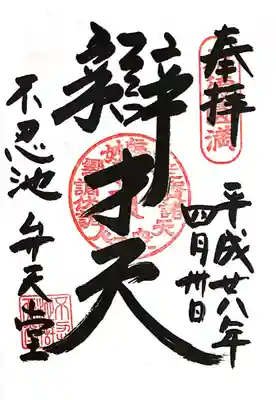 奉拝
平成廿八年
四月卅日
辯才天
不忍池 弁天堂